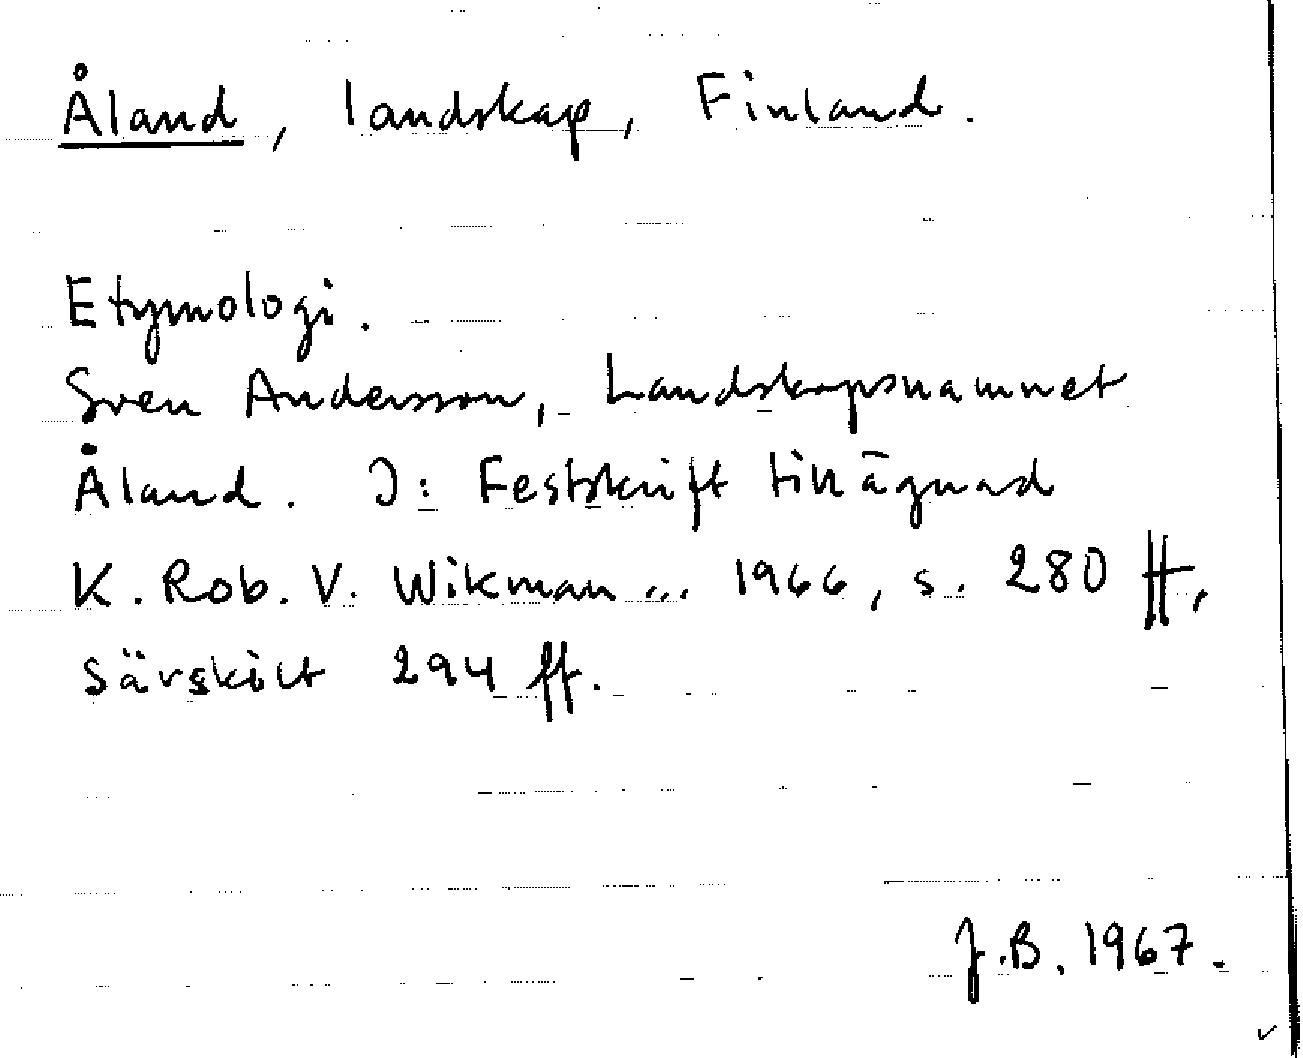 Åland, landskap, Finland.
Etymologi.
Sven Andersson, Landskapsnamnet
Åland. I: Festskrift tillägnad
K. Rob. V. Wikman ... 1966, s. 280 ff,
särskilt 294 ff.
J.B. 1967.